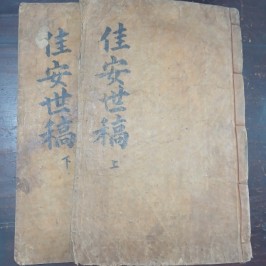 佳安世稿
上
佳安世稿
下